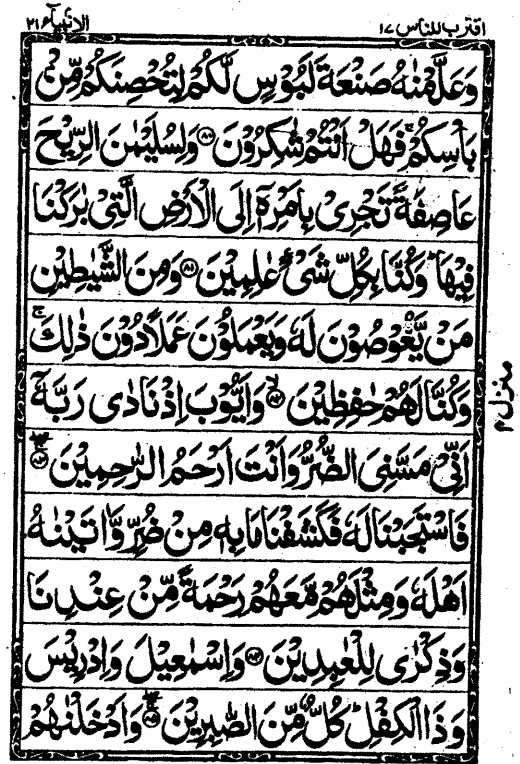 اقترب للناس ١٧
الانبیآء ٢١
وَعَلَّمْنٰهُ صَنْعَةَ لَبُوْسٍ لَّكُمْ لِتُحْصِنَكُمْ مِّنْۢ
بَاْسِكُمْ ۚ فَهَلْ اَنْتُمْ شٰكِرُوْنَ ۝٨٠ وَلِسُلَيْمٰنَ الرِّيْحَ
عَاصِفَةً تَجْرِىْ بِاَمْرِهٖۤ اِلَى الْاَرْضِ الَّتِىْ بٰرَكْنَا
فِيْهَا ؕ وَكُنَّا بِكُلِّ شَىْءٍ عٰلِمِيْنَ ۝٨١ وَمِنَ الشَّيٰطِيْنِ
مَنْ يَّغُوْصُوْنَ لَهٗ وَيَعْمَلُوْنَ عَمَلًا دُوْنَ ذٰلِكَ ۚ
وَكُنَّا لَهُمْ حٰفِظِيْنَ ۝٨٢ ۙ وَاَيُّوْبَ اِذْ نَادٰى رَبَّهٗۤ
اَنِّىْ مَسَّنِىَ الضُّرُّ وَاَنْتَ اَرْحَمُ الرّٰحِمِيْنَ ۝٨٣
فَاسْتَجَبْنَا لَهٗ فَكَشَفْنَا مَا بِهٖ مِنْ ضُرٍّ وَّاٰتَيْنٰهُ
اَهْلَهٗ وَمِثْلَهُمْ مَّعَهُمْ رَحْمَةً مِّنْ عِنْدِنَا
وَذِكْرٰى لِلْعٰبِدِيْنَ ۝٨٤ وَاِسْمٰعِيْلَ وَاِدْرِيْسَ
وَذَا الْكِفْلِ ؕ كُلٌّ مِّنَ الصّٰبِرِيْنَ ۝٨٥ وَاَدْخَلْنٰهُمْ
منزل ٤